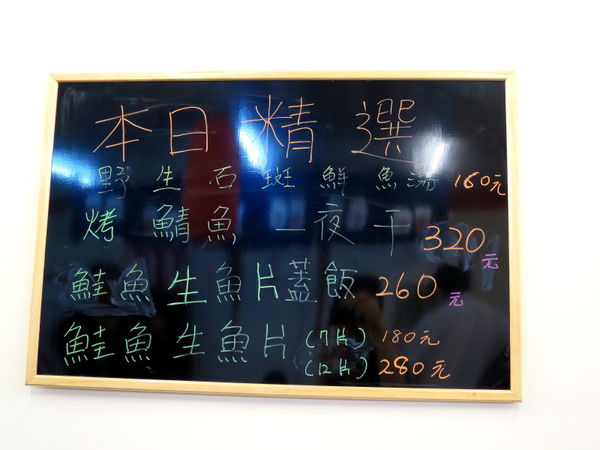 本日精選
野生石斑鮮魚湯 160元
烤鯖魚一夜干 320元
鮭魚生魚片蓋飯 260元
鮭魚生魚片 (7片) 180元
(12片) 280元